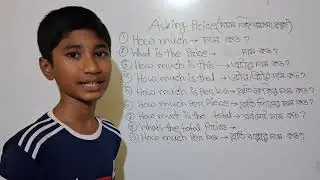 Asking Price (দাম জিজ্ঞাসা করা)
① How much → দাম কত?
② What is the Price → দাম কত?
③ How much is this → এটার দাম কত?
④ How much is that → ওটার দাম কত?
⑤ How much is Per kg → প্রতি কেজির দাম কত?
⑥ How much Per Piece → প্রতি পিসের দাম কত?
⑦ How much is the total → দাম কত?
⑧ What's the total Price →
⑨ How much Per box → প্রতি বক্সের দাম কত?